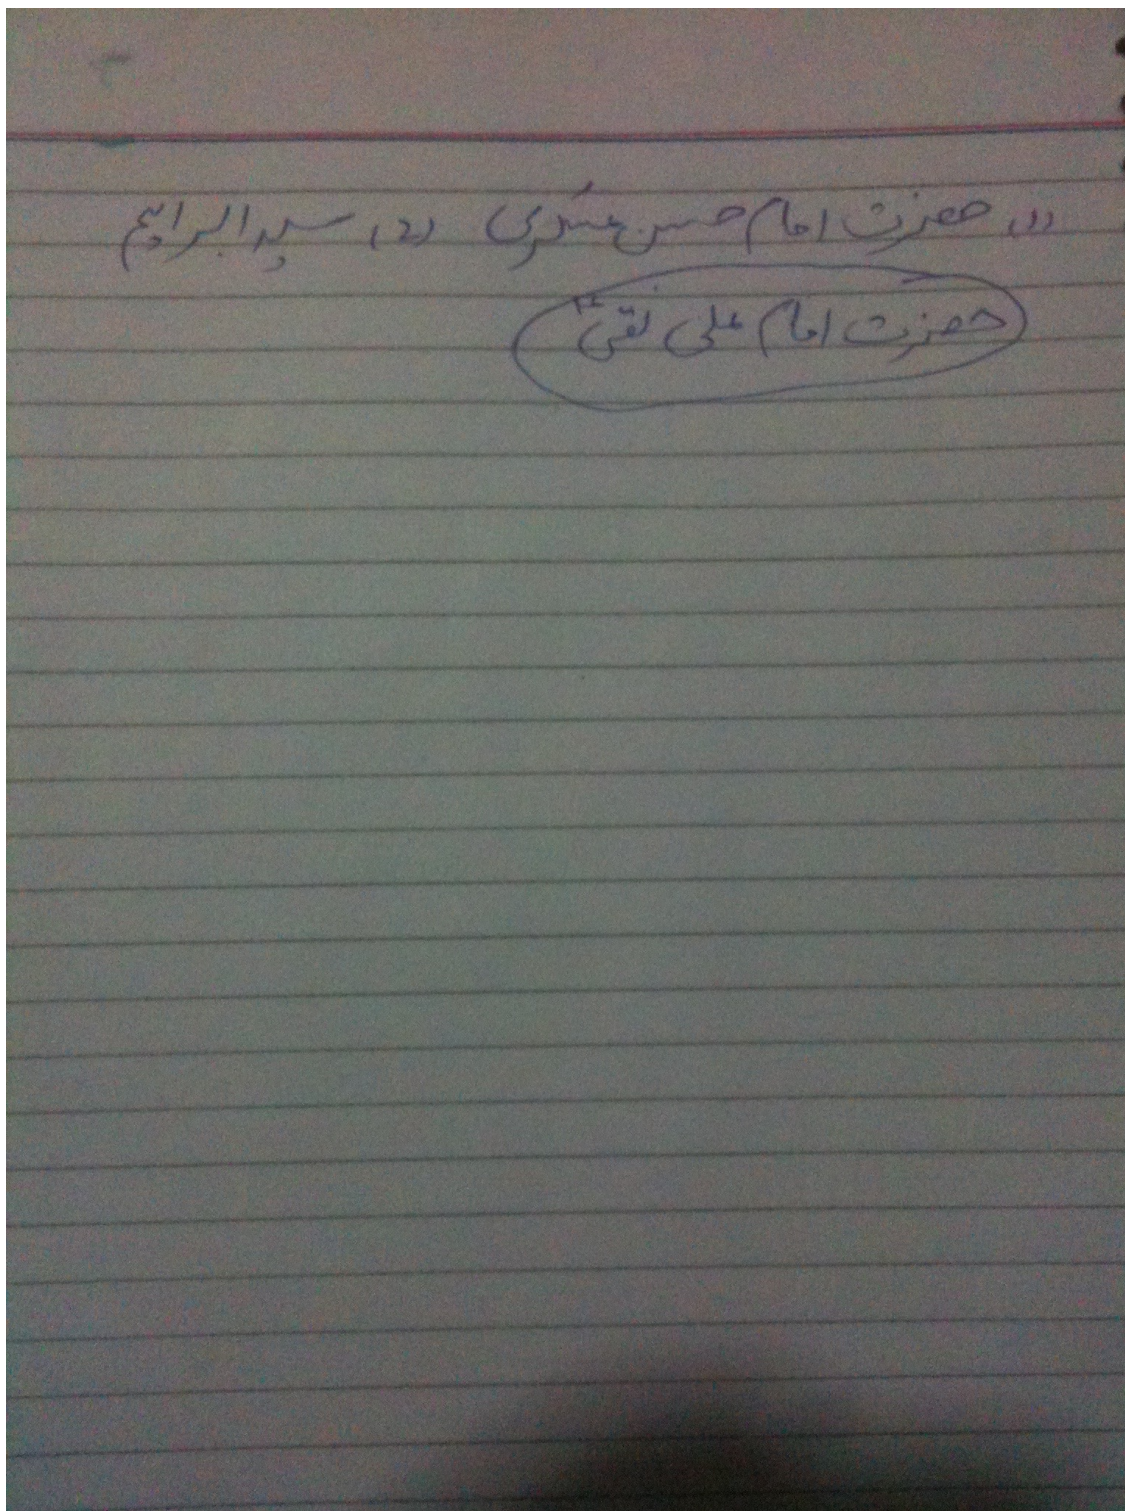 (1) حضرت امام حسن عسکری (2) سید ابراہیم
حضرت امام علی نقیؑ